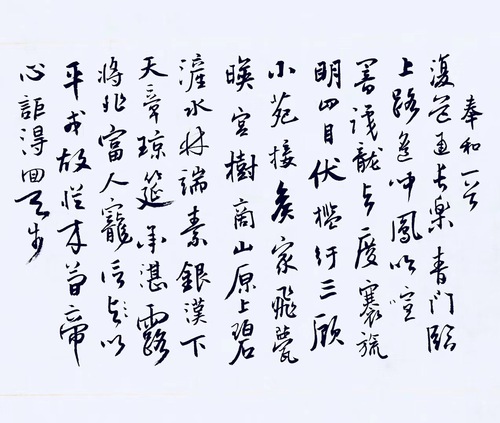 奉和一首
復道通長樂青門臨
上路遙聞鳳吹喧
識龍與度褰旒
明四目伏檻紆三顧
小苑接侯家飛甍
暎宮樹商山原上碧
滻水林端素銀漢下
天章瓊筵承湛露
將非富人寵信以
平戎故從來簡帝
心詎得回天步